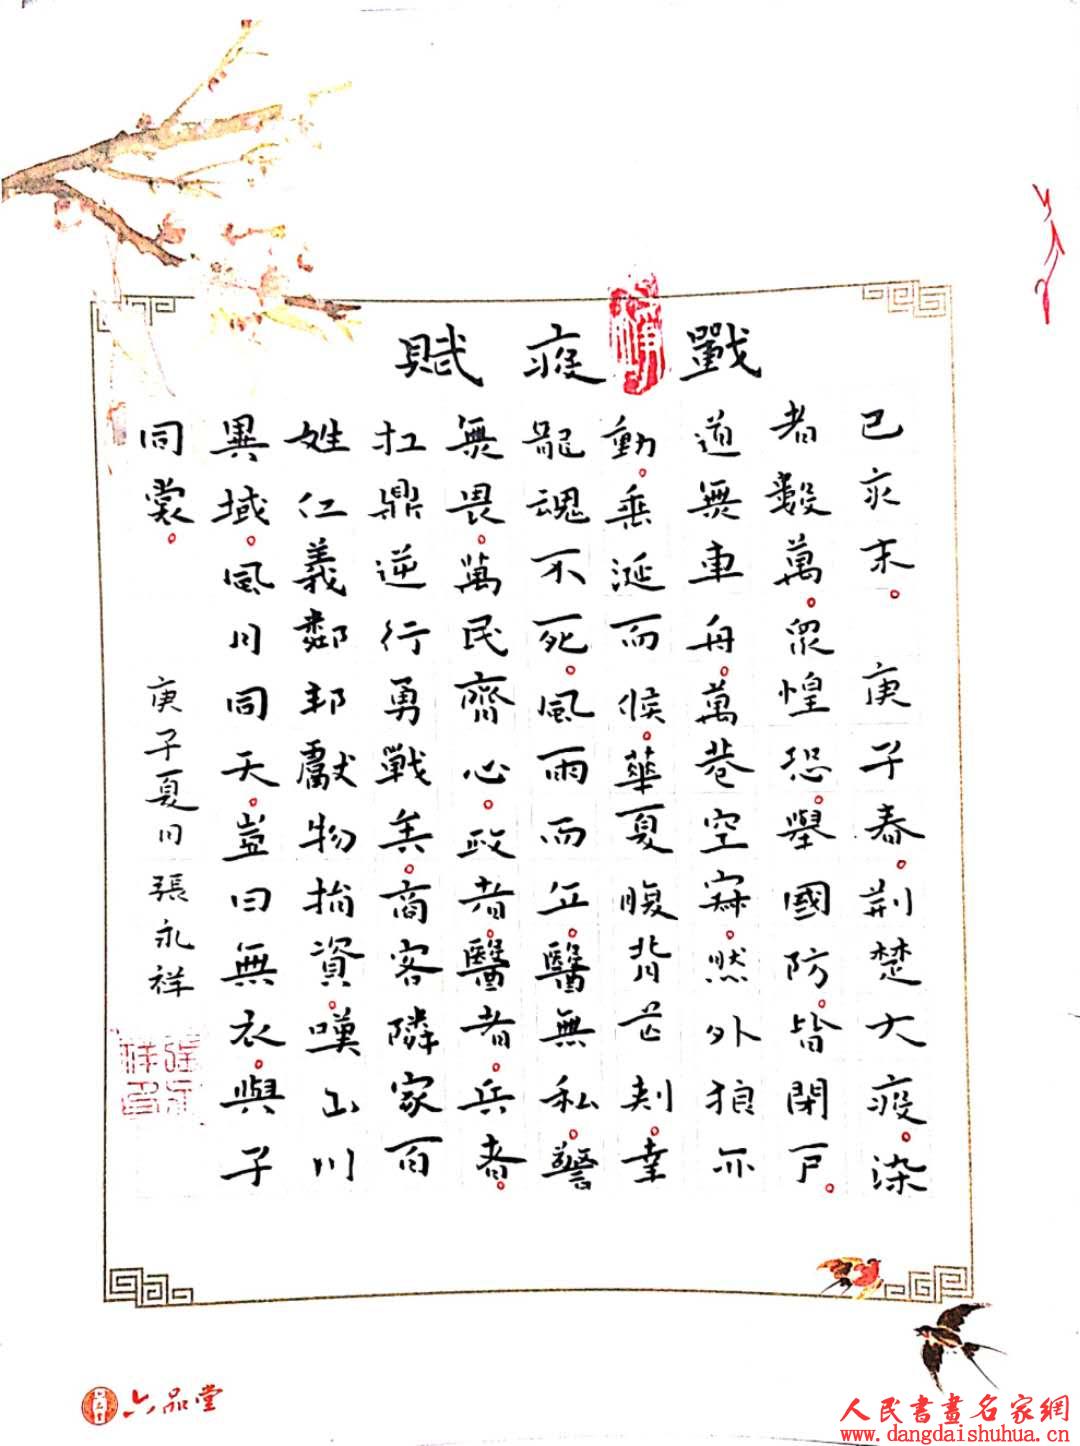 戰疫賦
已亥末。庚子春。荆楚大疫。染
者數萬。眾惶恐。舉國防。皆閉戸。
道無車舟。萬巷空寂。然外狼亦
動。垂涎而候。華夏腹背芒刺。幸
龍魂不死。風雨而立。醫無私。警
無畏。萬民齊心。政者。醫者。兵者。
扛鼎逆行勇戰矣。商客隣家百
姓仁義鄰邦獻物捐資。嘆山川
異域。風川同天。豈曰無衣。與子
同裳。
庚子夏川張永祥
六品堂
人民書畫名家網
www.dangdaishuhua.cn